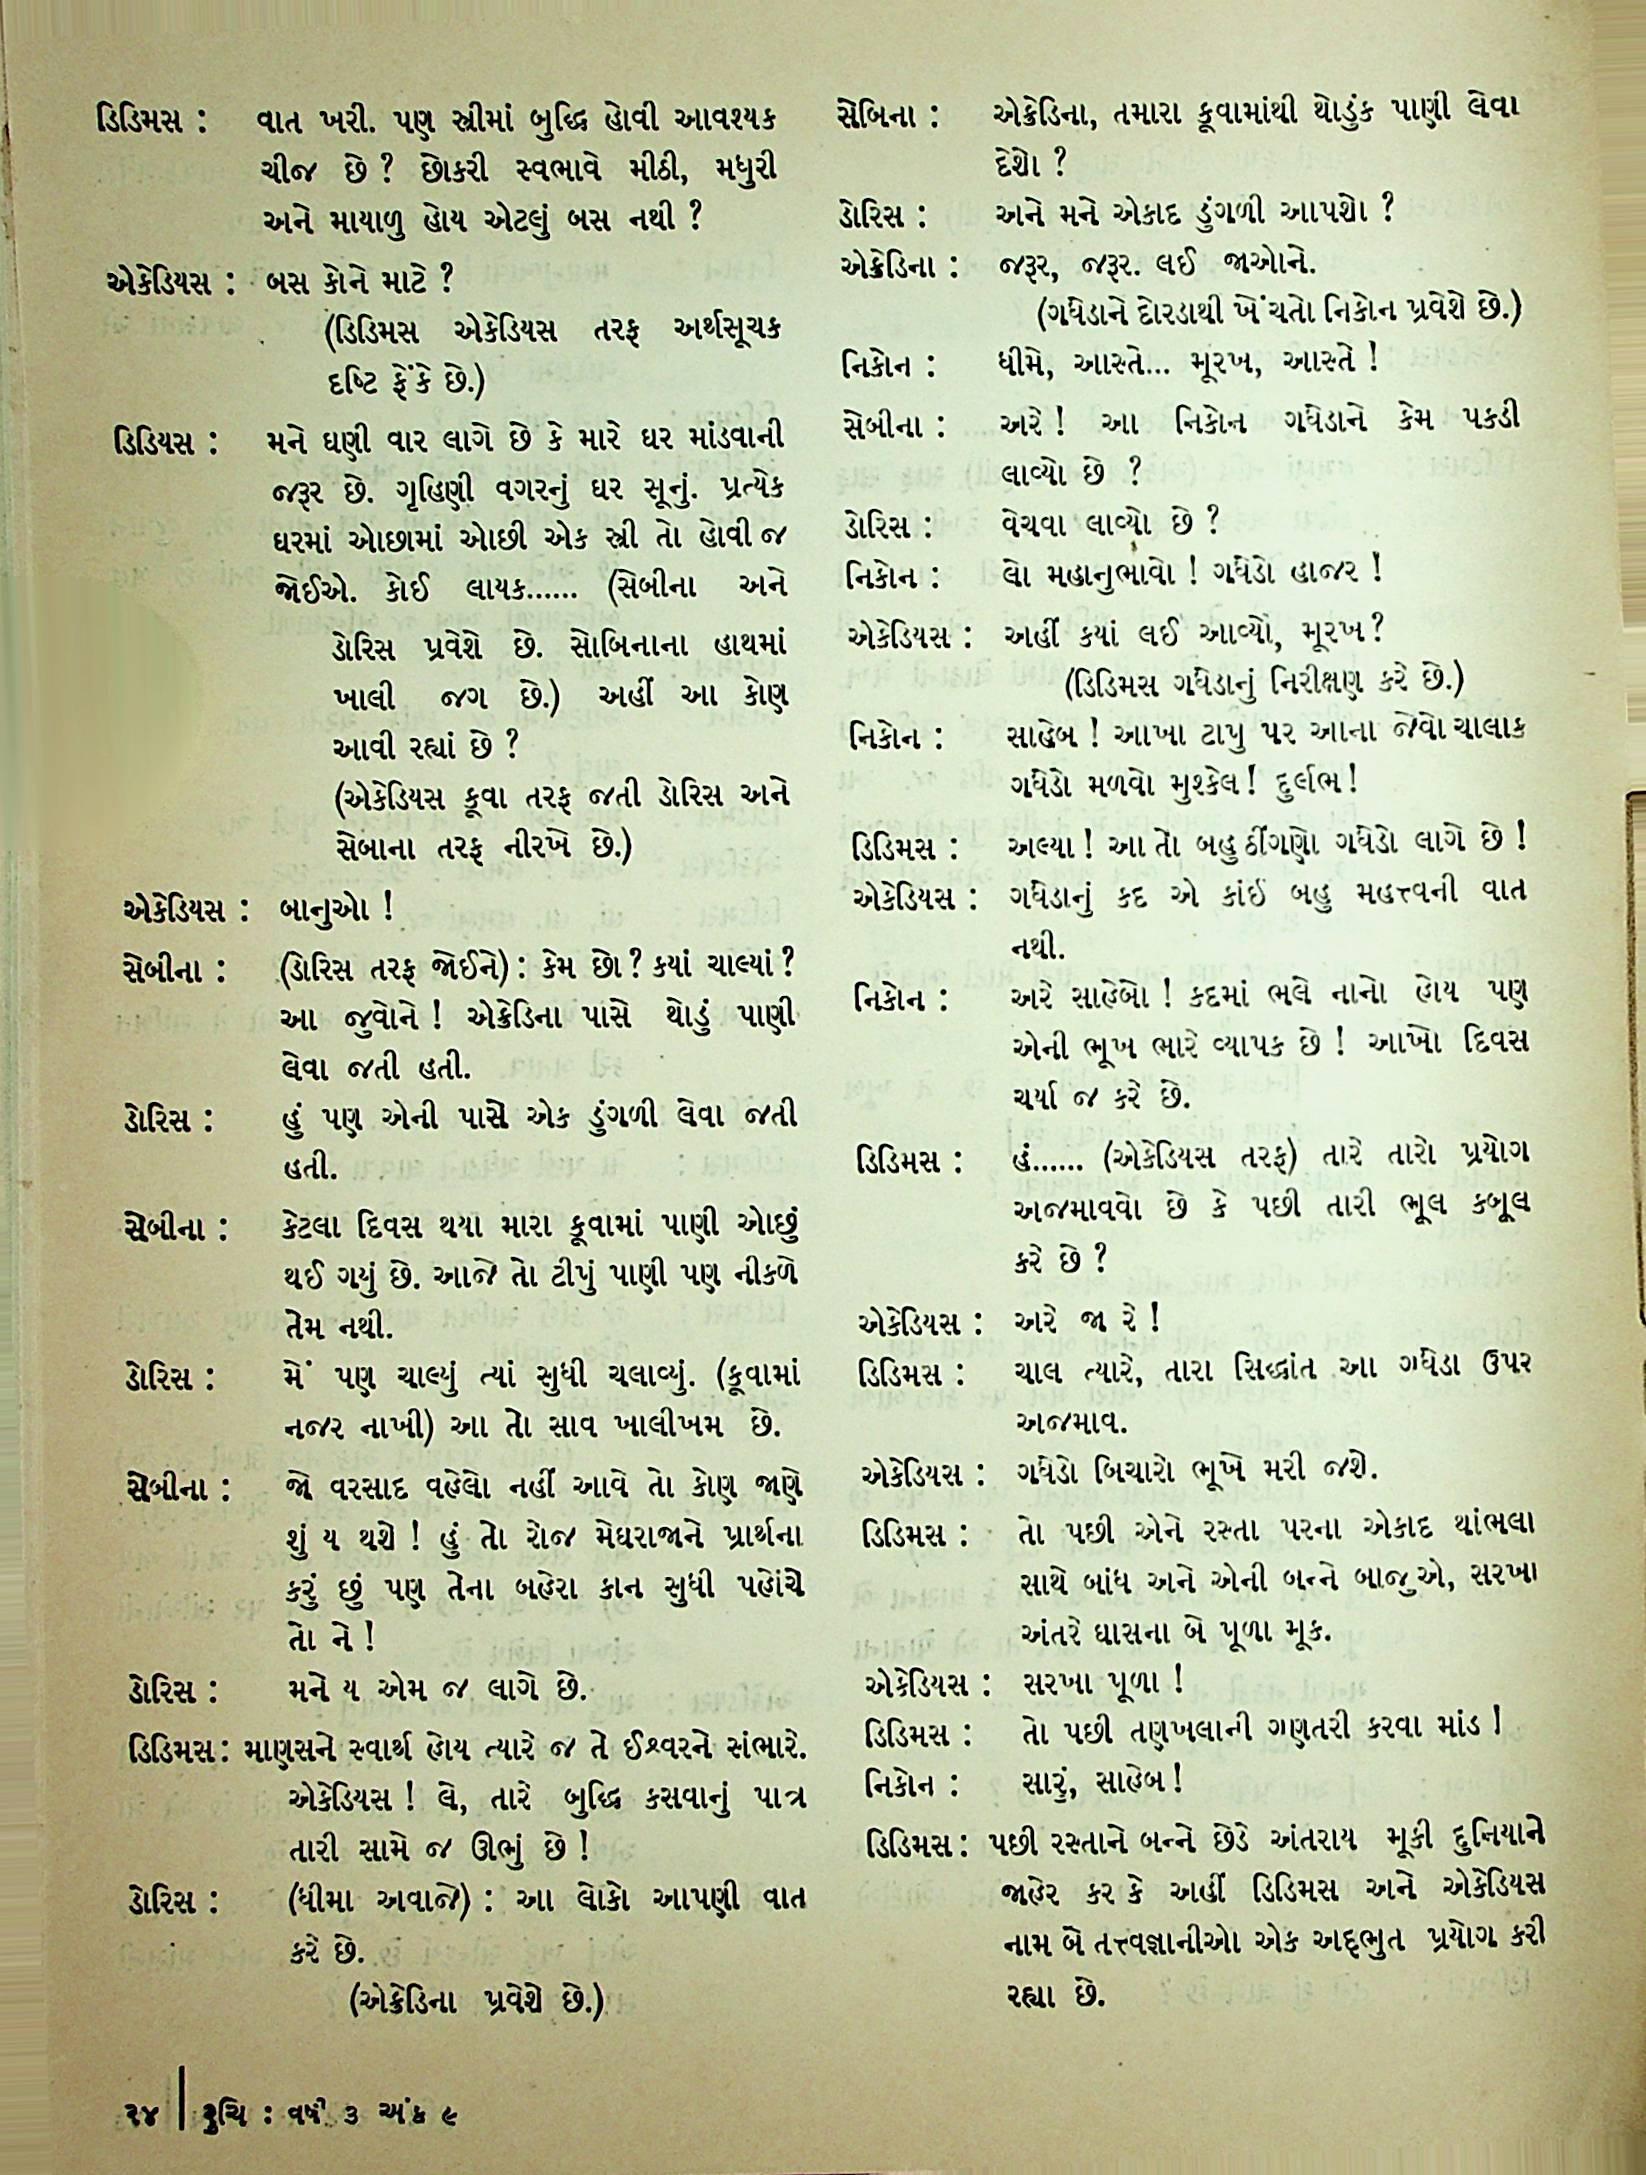 ડિડિમસ : વાત ખરી. પણ સ્ત્રીમાં બુદ્ધિ હોવી આવશ્યક
ચીજ છે? છોકરી સ્વભાવે મીઠી, મધુરી
અને માયાળુ હોય એટલું બસ નથી ?
એકેડિયસ : બસ કોને માટે ?
(ડિડિમસ એકેડિયસ તરફ અર્થસૂચક
દષ્ટિ ફેંકે છે.)
ડિડિયસ : મને ઘણી વાર લાગે છે કે મારે ઘર માંડવાની
જરૂર છે. ગૃહિણી વગરનું ઘર સૂનું. પ્રત્યેક
ઘરમાં ઓછામાં ઓછી એક સ્ત્રી તો હોવી જ
જોઈએ. કોઈ લાયક...... (સેબીના અને
ડોરિસ પ્રવેશે છે. સોબિનાના હાથમાં
ખાલી જગ છે.) અહીં આ કોણ
આવી રહ્યાં છે ?
(એકેડિયસ કૂવા તરફ જતી ડોરિસ અને
સેબાના તરફ નીરખે છે.)
એકેડિયસ : બાનુઓ !
સેબીના : (ડોરિસ તરફ જોઈને) : કેમ છો? કયાં ચાલ્યાં?
આ જુવોને ! એક્રેડિના પાસે થોડું પાણી
લેવા જતી હતી.
ડોરિસ : હું પણ એની પાસે એક ડુંગળી લેવા જતી
હતી.
સેબીના : કેટલા દિવસ થયા મારા કૂવામાં પાણી ઓછું
થઈ ગયું છે. આજે તો ટીપું પાણી પણ નીકળે
તેમ નથી.
ડોરિસ : મેં પણ ચાલ્યું ત્યાં સુધી ચલાવ્યું. (કૂવામાં
નજર નાખી) આ તો સાવ ખાલીખમ છે.
સેબીના : જો વરસાદ વહેલો નહીં આવે તો કોણ જાણે
શું ય થશે ! હું તો રોજ મેઘરાજાને પ્રાર્થના
કરું છું પણ તેના બહેરા કાન સુધી પહોંચે
તો ને !
ડોરિસ : મને ય એમ જ લાગે છે.
ડિડિમસ : માણસને સ્વાર્થ હોય ત્યારે જ તે ઈશ્વરને સંભારે.
એકેડિયસ ! લે, તારે બુદ્ધિ કસવાનું પાત્ર
તારી સામે જ ઊભું છે !
ડોરિસ : (ધીમા અવાજે) : આ લોકો આપણી વાત
કરે છે.
(એક્રેડિના પ્રવેશે છે.)
સેબિના : એક્રેડિના, તમારા કૂવામાંથી થોડુંક પાણી લેવા
દેશો ?
ડોરિસ : અને મને એકાદ ડુંગળી આપશો ?
એક્રેડિના : જરૂર, જરૂર. લઈ જાઓને.
(ગધેડાને દોરડાથી ખેંચતો નિકોન પ્રવેશે છે.)
નિકોન : ધીમે, આસ્તે... મૂરખ, આસ્તે !
સેબીના : અરે ! આ નિકોન ગધેડાને કેમ પકડી
લાવ્યો છે ?
ડોરિસ : વેચવા લાવ્યો છે ?
નિકોન : લો મહાનુભાવો ! ગધેડો હાજર !
એકેડિયસ : અહીં કયાં લઈ આવ્યો, મૂરખ?
(ડિડિમસ ગધેડાનું નિરીક્ષણ કરે છે.)
નિકોન : સાહેબ ! આખા ટાપુ પર આના જેવો ચાલાક
ગધેડો મળવો મુશ્કેલ! દુર્લભ!
ડિડિમસ : અલ્યા ! આ તો બહુ ઠીંગણો ગધેડો લાગે છે !
એકેડિયસ : ગધેડાનું કદ એ કાંઈ બહુ મહત્ત્વની વાત
નથી.
નિકોન : અરે સાહેબો ! કદમાં ભલે નાનો હોય પણ
એની ભૂખ ભારે વ્યાપક છે ! આખો દિવસ
ચર્યા જ કરે છે.
ડિડિમસ : હં...... (એકેડિયસ તરફ) તારે તારો પ્રયોગ
અજમાવવો છે કે પછી તારી ભૂલ કબૂલ
કરે છે ?
એકેડિયસ : અરે જા રે !
ડિડિમસ : ચાલ ત્યારે, તારા સિદ્ધાંત આ ગધેડા ઉપર
અજમાવ.
એકેડિયસ : ગધેડો બિચારો ભૂખે મરી જશે.
ડિડિમસ : તો પછી એને રસ્તા પરના એકાદ થાંભલા
સાથે બાંધ અને એની બન્ને બાજુએ, સરખા
અંતરે ઘાસના બે પૂળા મૂક.
એકેડિયસ : સરખા પૂળા !
ડિડિમસ : તો પછી તણખલાની ગણતરી કરવા માંડ !
નિકોન : સારું, સાહેબ !
ડિડિમસ : પછી રસ્તાને બન્ને છેડે અંતરાય મૂકી દુનિયાને
જાહેર કર કે અહીં ડિડિમસ અને એકેડિયસ
નામ બે તત્ત્વજ્ઞાનીઓ એક અદ્ભુત પ્રયોગ કરી
રહ્યા છે.
૨૪ | રુચિ : વર્ષ ૩ અંક ૯